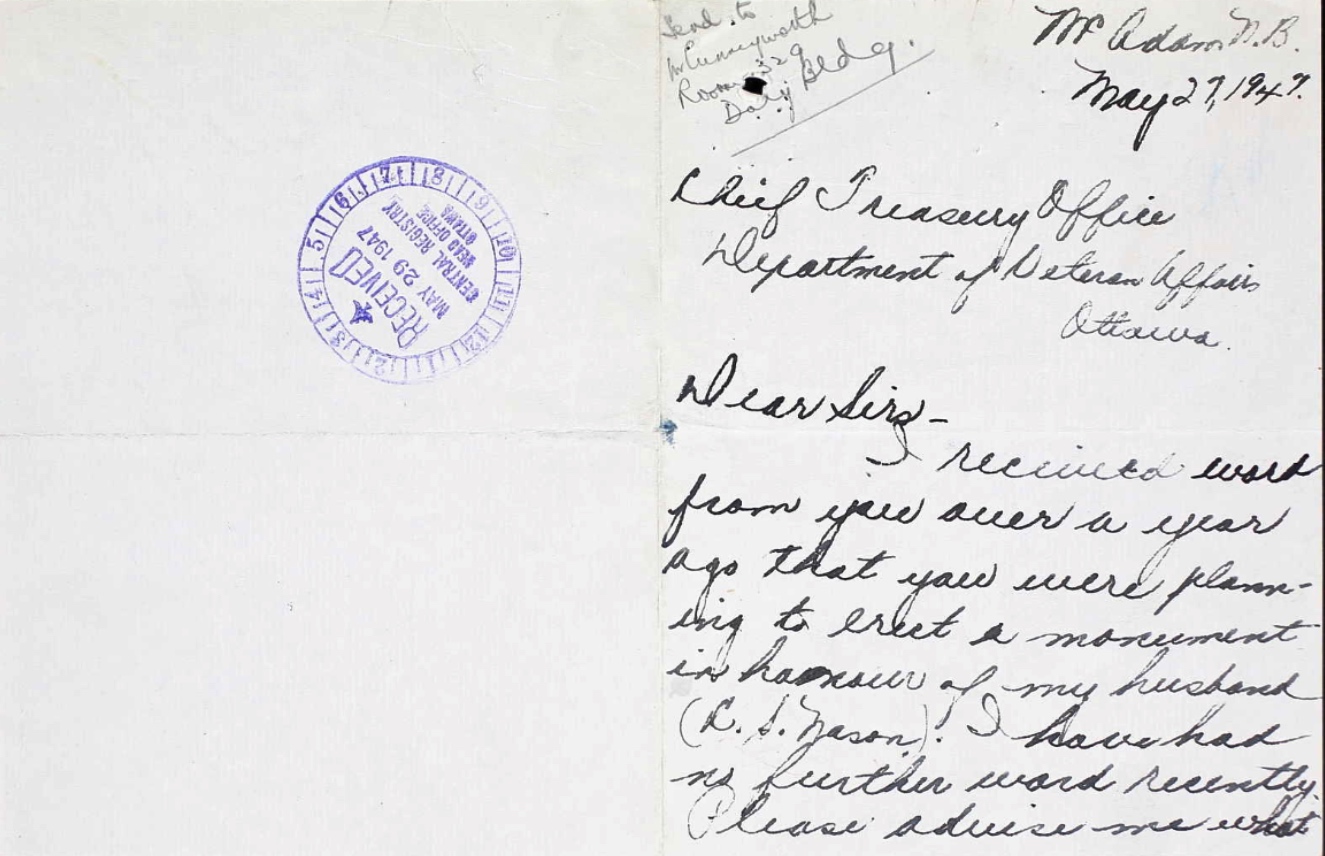 RECEIVED
MAY 29 1947
CENTRAL REGISTRY
HEAD OFFICE
OTTAWA
1 2 3 4 5 6 7 8 9 10 11 12
Send to
Room 529
Daly Bldg.
McAdam N.B.
May 27, 1947.
Chief Treasury Office
Department of Veteran Affairs
Ottawa.
Dear Sirs-
I received word
from you over a year
ago that you were plann-
ing to erect a monument
in honour of my husband
(L. S. Nason). I have had
no further word recently.
Please advise me what